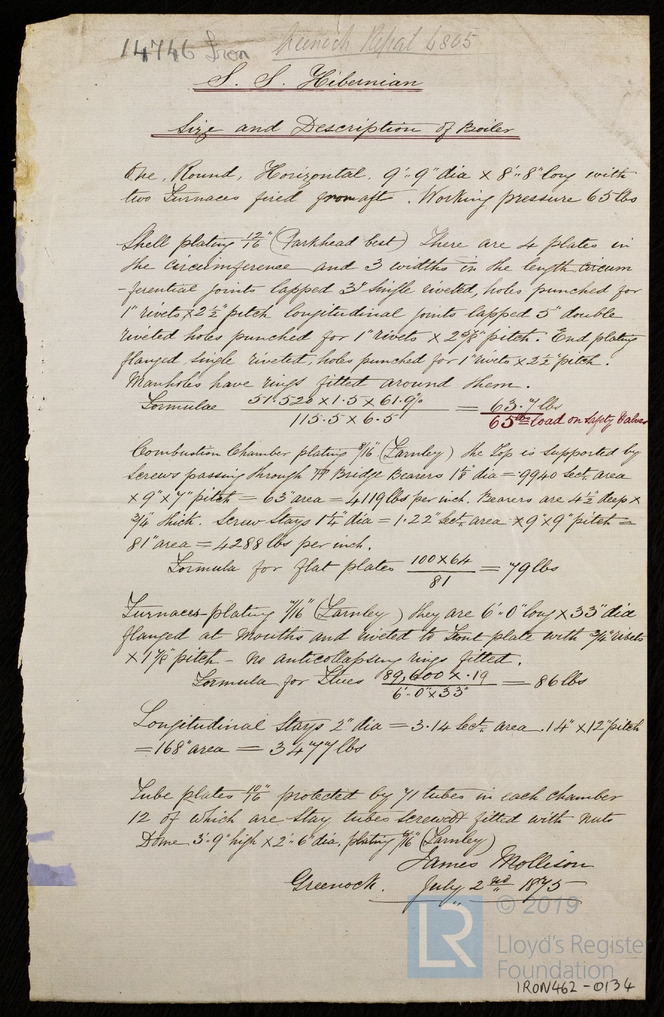 14746 Iron Greenock Report 6805
S. S. Hibernian
Size and Description of Boiler
One, Round, Horizontal, 9'-9" dia x 8'-8" long with
two Furnaces fired from aft. Working pressure 65 lbs
Shell plating 12/16" (Parkhead best) There are 4 plates in
the circumference and 3 widths in the length circum
-ferential joints lapped 3" single riveted, holes punched for
1" rivets x 2½" pitch longitudinal joints lapped 5" double
riveted holes punched for 1" rivets x 2⅝" pitch. End plating
flanged single riveted, holes punched for 1" rivets x 2½" pitch.
Manholes have rings fitted around them.
Formulae 51.520 x 1.5 x 61.9% / 115.5 x 6.5 = 63.7 lbs
65 lbs = load on Safety Valves
Combustion Chamber plating 9/16 (Farnley) the Top is supported by
Screws passing through Bridge Bearers 1⅛ dia = .9940 Sect. area
x 9" x 7" pitch = 63" area = 4119 lbs per inch. Bearers are 4½ deep x
¾ thick. Screw Stays 1¼" dia = 1.22" Sect. area x 9" x 9" pitch =
81" area = 4288 lbs per inch.
Formula for flat plates 100 x 64 / 81 = 79 lbs
Furnaces plating 7/16" (Farnley) they are 6'-0" long x 33" dia
flanged at Mouths and riveted to front plate with ¾" rivets
x 1⅞" pitch - no anticollapsing rings fitted.
Formula for Flues 89,600 x .19 / 6'-0" x 33" = 86 lbs
Longitudinal Stays 2" dia = 3.14 Sect. area. 14" x 12" pitch
= 168" area = 3477 lbs
Tube plates 10/16" protected by 71 tubes in each chamber
12 of which are Stay tubes screwed fitted with nuts
Dome 3'-9" high x 2'-6 dia, plating (Farnley)
James Mollison
Greenock. July 2nd 1875
LR © 2019
Lloyd's Register
Foundation
IRON462-0134